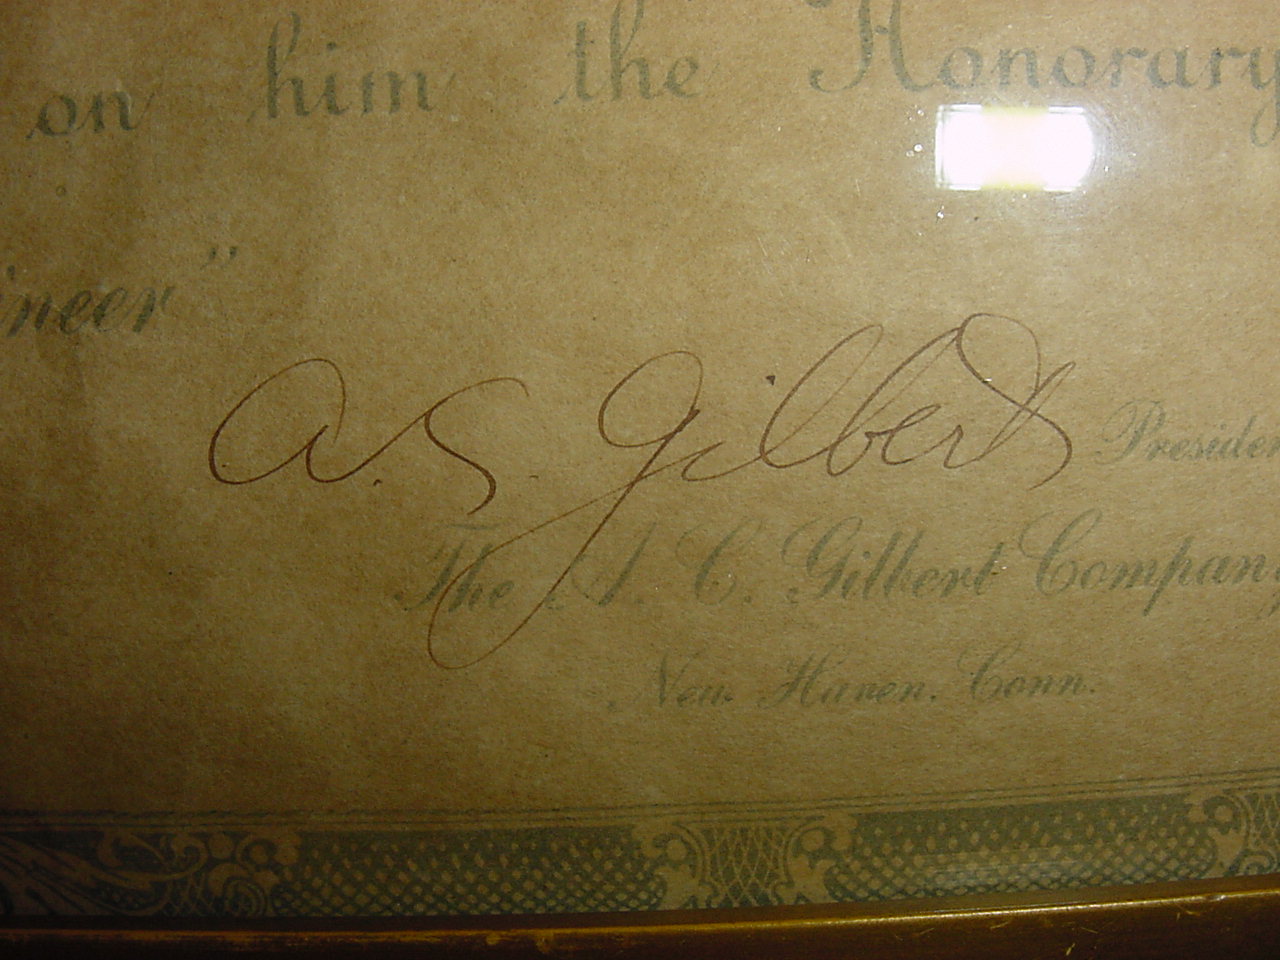 on him the Honorary
ineer"
A. C. Gilbert Presiden
The A. C. Gilbert Company
New Haven. Conn.